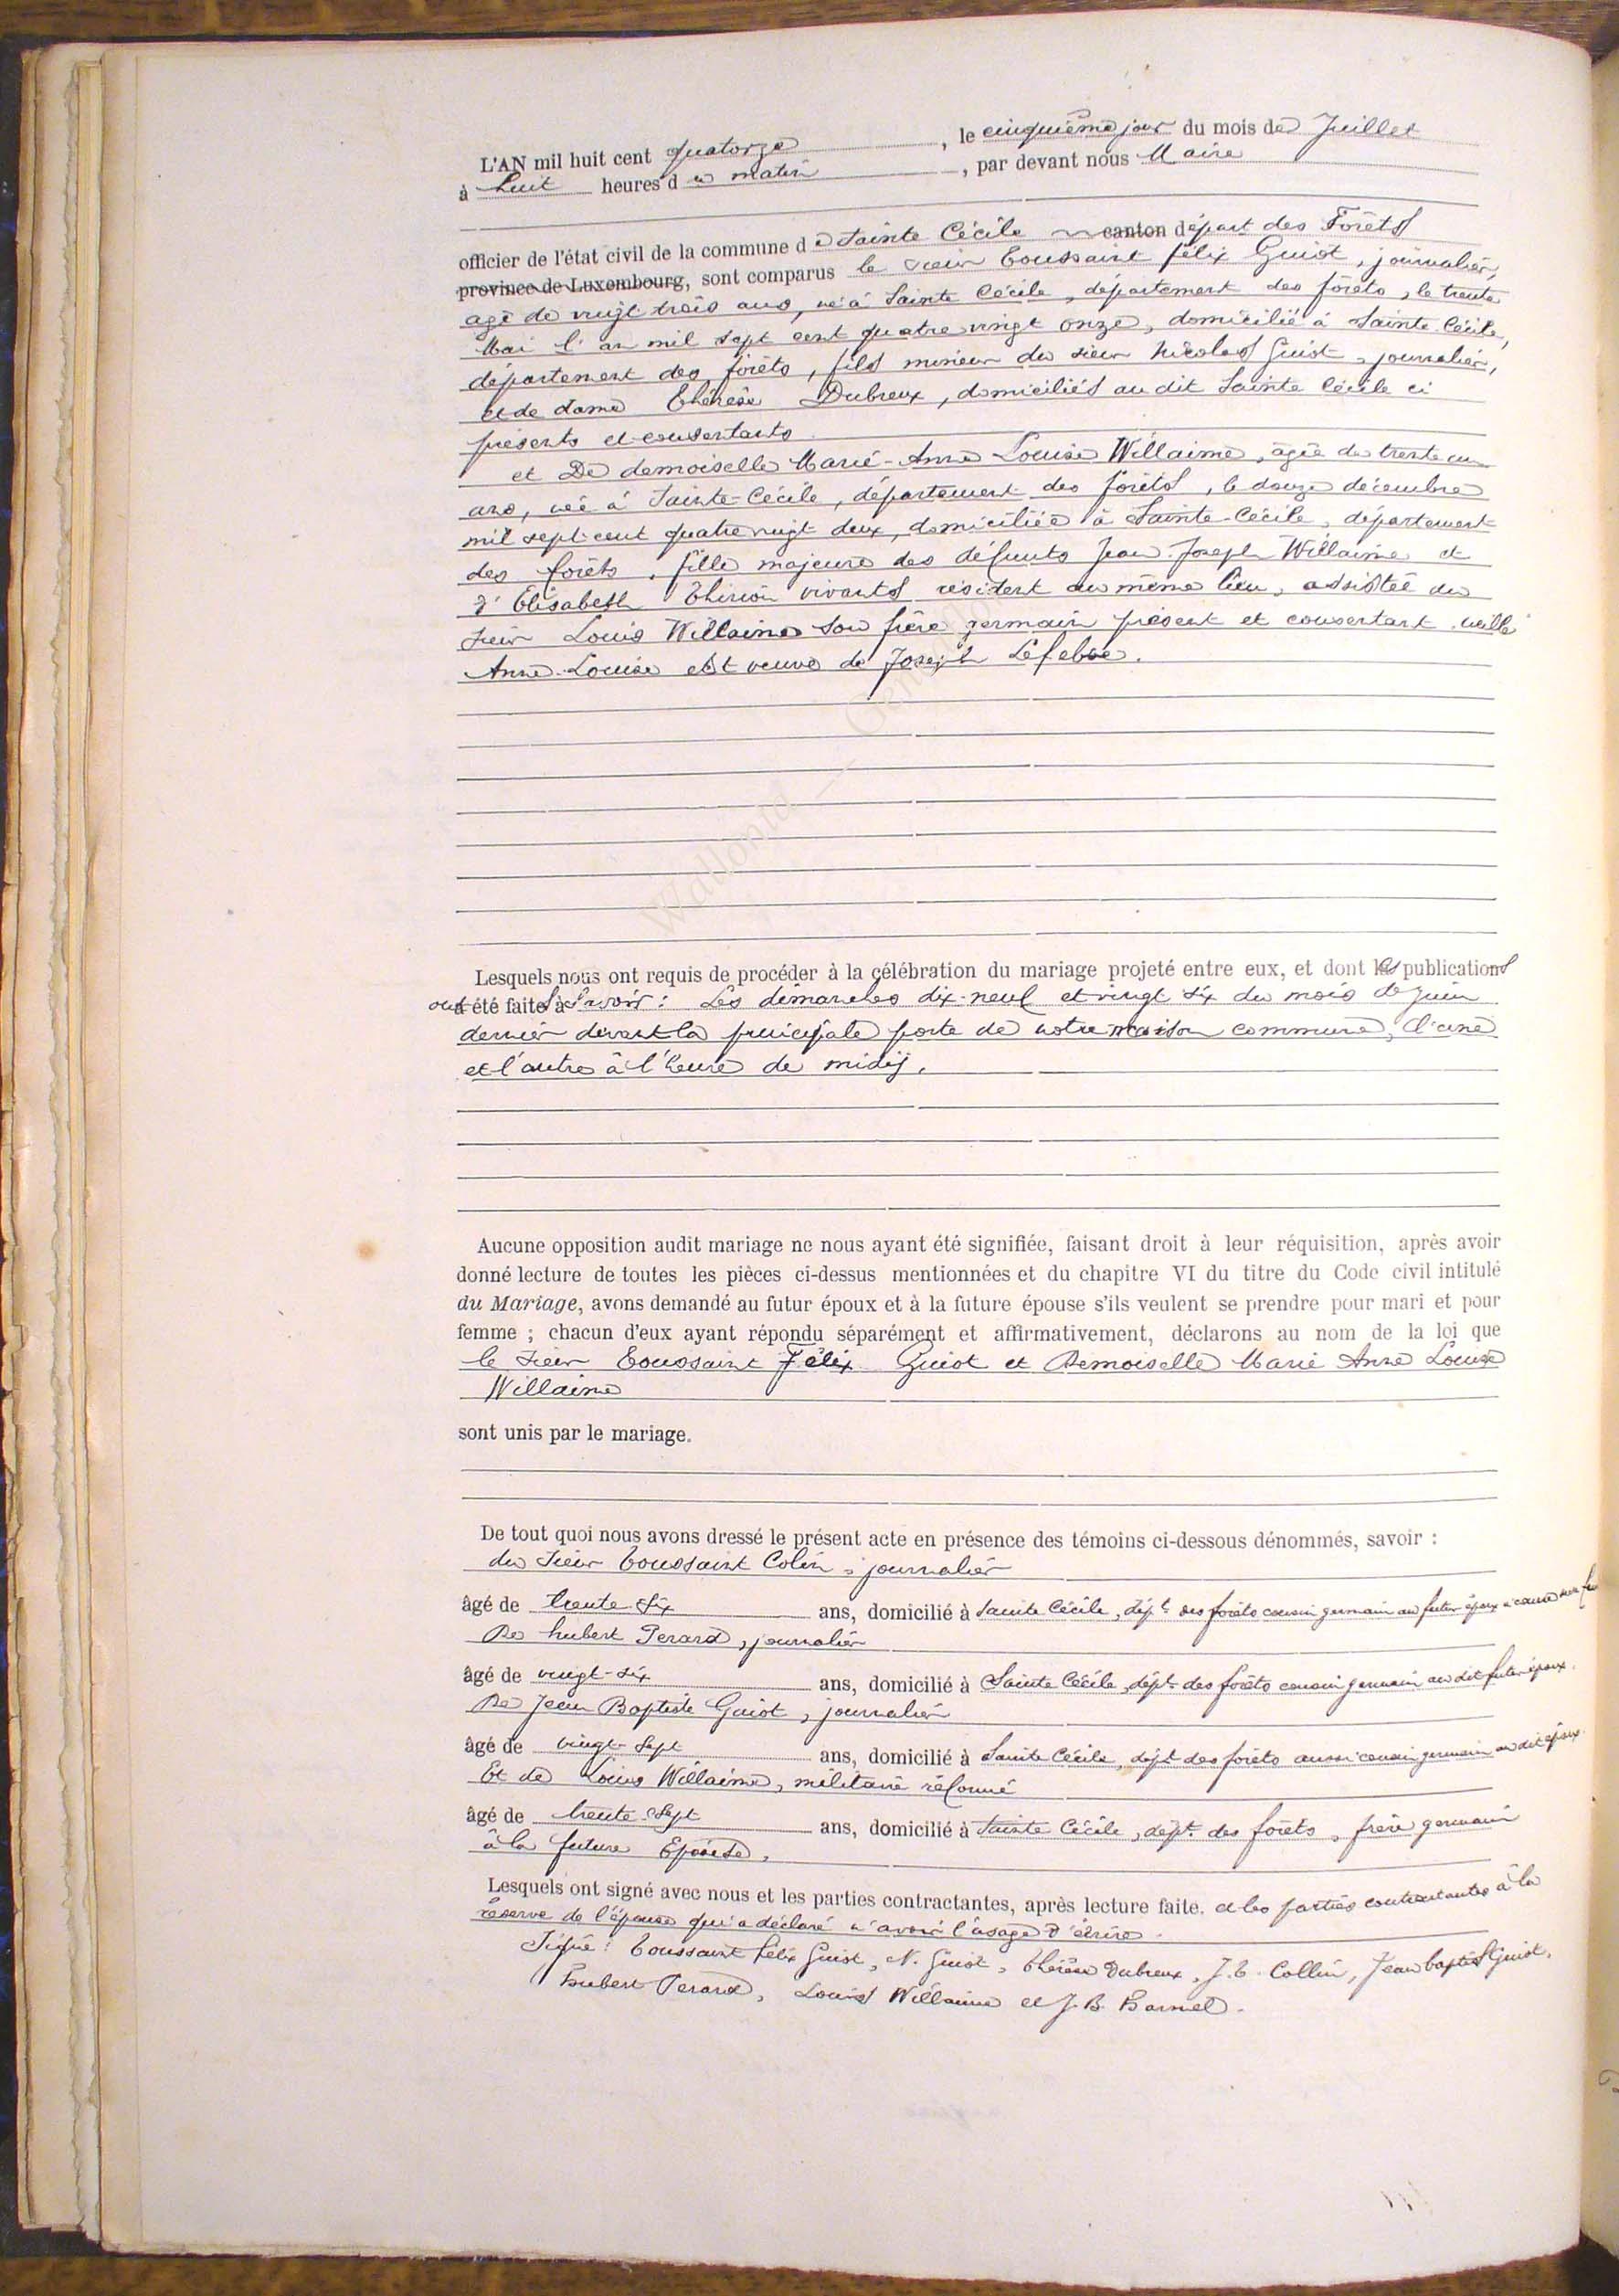 L'AN mil huit cent quatorze, le cinquième jour du mois de Juillet
à huit heures du matin, par devant nous Maire
officier de l'état civil de la commune de Sainte Cécile canton départ des Forêts
province de Luxembourg, sont comparus le sieur Toussaint félix Guiot, journalier,
agé de vingt trois ans, né à Sainte Cécile, département des forêts, le trente
Mai l'an mil sept cent quatre vingt onze, domicilié à Sainte Cécile,
département des forêts, fils mineur du sieur Nicolas Guiot, journalier,
et de dame Thérèse Dubreux, domiciliés au dit Sainte Cécile ci
présents et consentants
et De demoiselle Marie-Anne Louise Willaime, agée de trente un
ans, née à Sainte-Cécile, département des forêts, le douze décembre
mil sept-cent quatre vingt-deux, domiciliée à Sainte-Cécile, département
des forêts, fille majeure des défunts Jean-Joseph Willaime et
d'Élisabeth Thirion vivants résident au même lieu, assistée du
sieur Louis Willaime son frère germain présent et consentant
Anne-Louise est veuve de Joseph Lefebve.
Wallonia
Lesquels nous ont requis de procéder à la célébration du mariage projeté entre eux, et dont les publications
ont été faites à Savoir : Les dimanches dix-neuf et vingt six du mois de juin
dernier devant la principale porte de notre maison commune, l'une
et l'autre à l'heure de midij.
Aucune opposition audit mariage ne nous ayant été signifiée, faisant droit à leur réquisition, après avoir
donné lecture de toutes les pièces ci-dessus mentionnées et du chapitre VI du titre du Code civil intitulé
du Mariage, avons demandé au futur époux et à la future épouse s'ils veulent se prendre pour mari et pour
femme ; chacun d'eux ayant répondu séparément et affirmativement, déclarons au nom de la loi que
le sieur Toussaint Félix Guiot et Demoiselle Marie Anne Louise
Willaime
sont unis par le mariage.
De tout quoi nous avons dressé le présent acte en présence des témoins ci-dessous dénommés, savoir :
du sieur Toussaint Colin, journalier
âgé de trente-six ans, domicilié à Sainte Cécile, dépt des forêts cousin germain au futur époux à cause
De hubert Perard, journalier
âgé de vingt-six ans, domicilié à Sainte Cécile, dépt des forêts cousin germain au dit futur époux.
De Jean Baptiste Guiot, journalier
âgé de vingt-sept ans, domicilié à Sainte Cécile, dépt des forêts aussi cousin germain au dit époux.
Et de Louis Willaime, militaire réformé
âgé de trente-sept ans, domicilié à Sainte Cécile, dépt. des forêts, frère germain
à la future Epouse.
Lesquels ont signé avec nous et les parties contractantes, après lecture faite. et les parties contractantes à la
réserve de l'épouse qui a déclaré n'avoir l'usage d'écrire.
Signé : Toussaint félix Guiot, N. Guiot, Thérèse Dubreux, J. T. Collin, Jean baptist Guiot,
hubert Perard, Louis Willaime et J. B. Barnel.